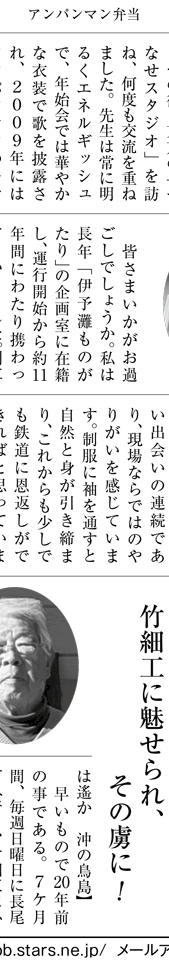 アンパンマン弁当
なせスタジオ」を訪
ね、何度も交流を重ね
ました。先生は常に明
るくエネルギッシュ
で、年始会では華やか
な衣装で歌を披露さ
れ、2009年には
皆さまいかがお過
ごしでしょうか。私は
長年「伊予灘ものが
たり」の企画室に在籍
し、運行開始から約11
年間にわたり携わっ
い出会いの連続であ
り、現場ならではのや
りがいを感じていま
す。制服に袖を通すと
自然と身が引き締ま
り、これからも少しで
も鉄道に恩返しがで
きればと思っていま
竹細工に魅せられ、
その虜に!
は遙か 沖の鳥島】
早いもので20年前
の事である。7ケ月
間、毎週日曜日に長尾
ob.stars.ne.jp/ メールア